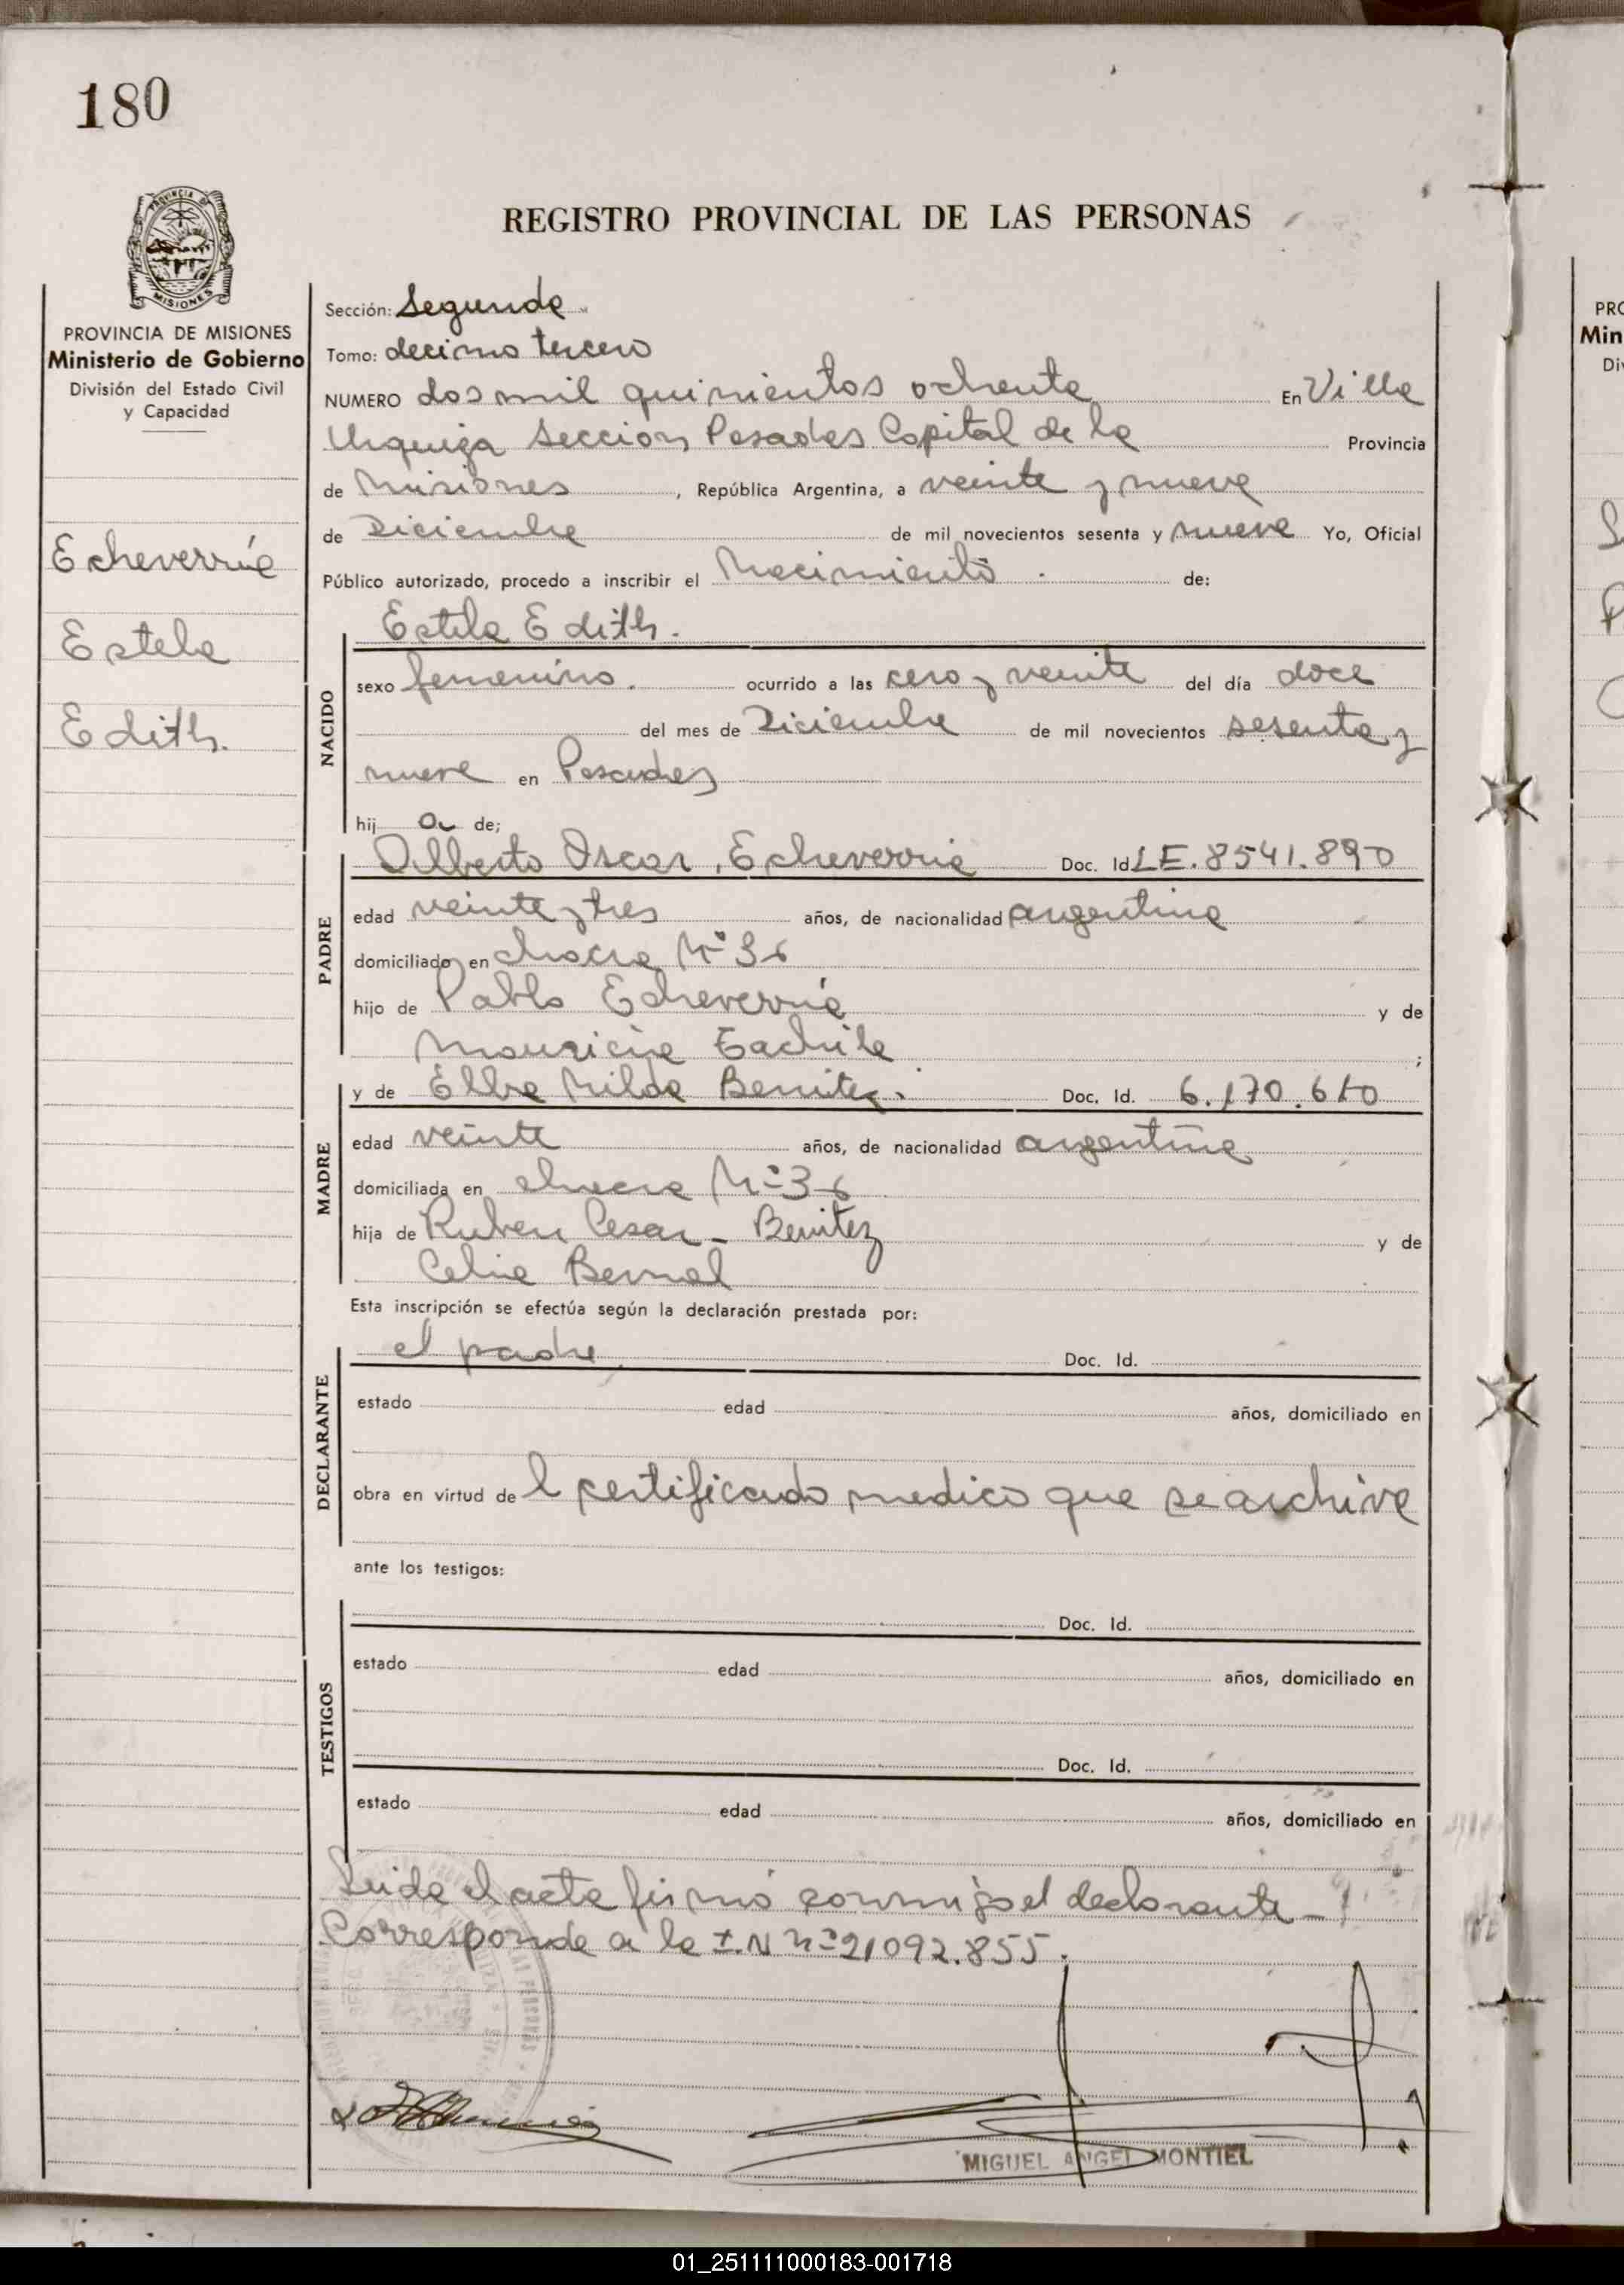 180
PROVINCIA DE
MISIONES
PROVINCIA DE MISIONES
Ministerio de Gobierno
División del Estado Civil
y Capacidad
Echeverría
Estela
Edith.
REGISTRO PROVINCIAL DE LAS PERSONAS
Sección: Segunda
Tomo: decimo tercero
NUMERO dos mil quinientos ochenta En Villa
Urquiza Seccion Posadas Capital de la Provincia
de Misiones, República Argentina, a veinte y nueve
de Diciembre de mil novecientos sesenta y nueve Yo, Oficial
Público autorizado, procedo a inscribir el Nacimiento de:
NACIDO
Estela Edith.
sexo femenino. ocurrido a las cero y veinte del día doce
del mes de Diciembre de mil novecientos sesenta y
nueve en Posadas
hij a de;
PADRE
Alberto Oscar Echeverria Doc. Id. LE. 8541.890
edad veinte y tres años, de nacionalidad argentina
domiciliado en chacra Nº 36
hijo de Pablo Echeverría y de
Mauricia ;
MADRE
y de Elba Nilda Benitez. Doc. Id. 6.170.610
edad veinte años, de nacionalidad argentina
domiciliada en chacra Nº 36
hija de Ruben Cesar - Benitez y de
Celia Bernal
Esta inscripción se efectúa según la declaración prestada por:
DECLARANTE
el padre. Doc. Id.
estado edad años, domiciliado en
obra en virtud de l certificado medico que se archiva
ante los testigos:
TESTIGOS
Doc. Id.
estado edad años, domiciliado en
Doc. Id.
estado edad años, domiciliado en
Leida el acta firmó conmigo el declarante -
Corresponde a la I.N nº 21092.855.
MIGUEL ANGEL MONTIEL
PRO
Min
Di
01_251111000183-001718